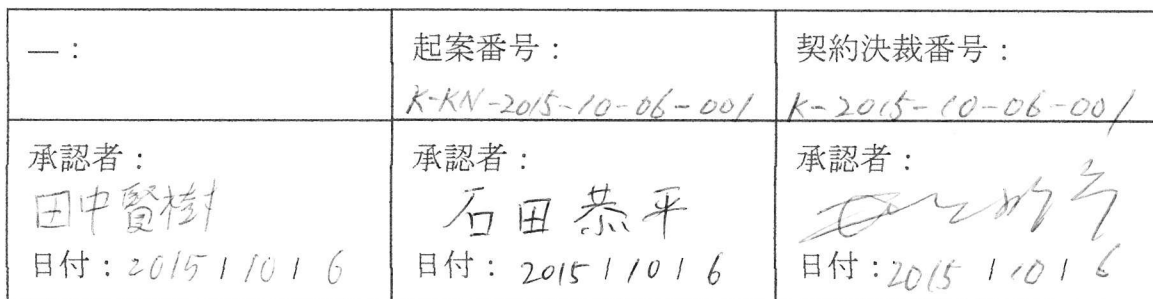 ―：
起案番号：
K-KN-2015-10-06-001
契約決裁番号：
K-2015-10-06-001
承認者：
田中賢樹
日付：2015/10/6
承認者：
石田恭平
日付：2015/10/6
承認者：
日付：2015/10/6